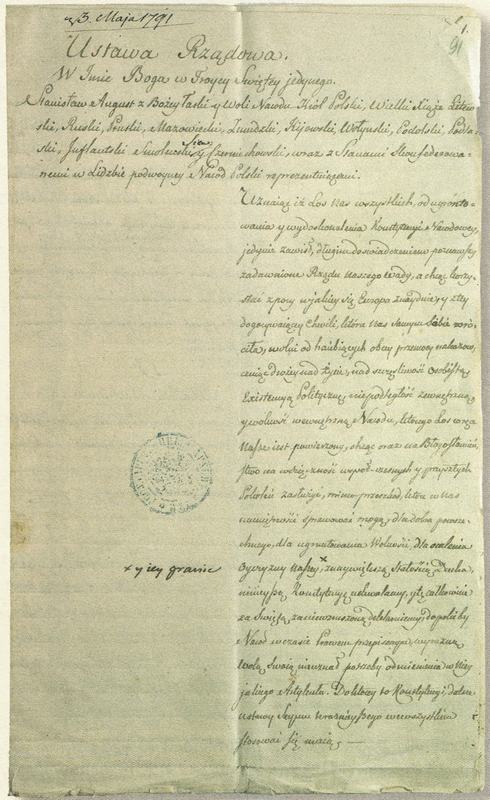 3. Maja 1791
1.
91
Ustawa Rządowa.
W Imie Boga w Troycy Swiętey jedynego.
Stanisław August z Bożey łaski y Woli Narodu Król Polski, Wielki Xiąże Litew-
ski, Ruski, Pruski, Mazowiecki, Żmudzki, Kijowski, Wołynski, Podolski, Podla-
ski, Inflantski Smolenski, Siewierski y Czerniechowski, wraz z Stanami Skonfederowa-
nemi w Liczbie podwoyney Naród Polski reprezentuiącemi.
Uznaiąc iż Los nas wszystkich, od ugrónto-
wania y wydoskonalenia Konstytucyi Narodowey,
jedynie zawisł, długim doswiadczeniem poznawszy
zadawnione Rządu naszego wady, a chcąc korzy-
stać z pory w jakiey się Europa znayduie, y z tey
dogorywaiącey Chwili, która nas samym sobie wró-
ciła, wolni od hańbiących obcey przemocy nakazow,
ceniąc drożey nad życie, nad szczęśliwość osobistą,
Existencyą Polityczną, niepodległość zewnętrzną
y wolność wewnętrzną Narodu, którego Los w ręce
nasze iest powierzony, chcąc oraz na Błogosławień-
stwo na wdzięczność współ-czesnych y przyszłych
Pokoleń zasłużyć, mimo przeszkod, które w nas
namiętność sprawować mogą, dla dobra powsze-
chnego, dla ugruntowania Wolności, dla ocalenia
Oyczyzny Naszey, x z naywiększą stałością Ducha,
x y iey granic
ninieyszą Konstytucyę uchwalamy, y tę całkowicie
za Swiętą, za niewzruszoną deklaruiemy, dopokiby
Naród w czasie Prawem przepisanym, wyraźną
wolą swoią nieuznał potrzeby odmienienia w Niey
jakiego Artykułu. Do ktorey to Konstytucyi, dalsze
ustawy Seymu teraznieyszego we wszystkim
stosować się maią. —